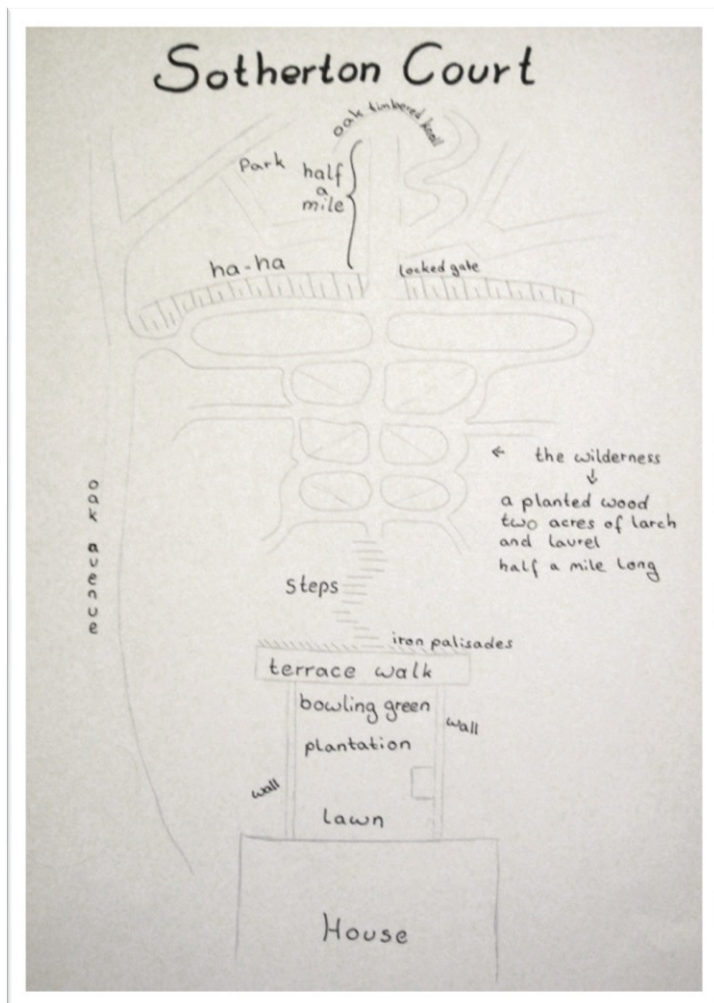 Sotherton Court
oak timbered knoll
Park
half
a
mile
ha-ha
locked gate
← the wilderness
↓
a planted wood
two acres of larch
and laurel
half a mile long
oak avenue
Steps
iron palisades
terrace walk
bowling green
wall
plantation
wall
lawn
House